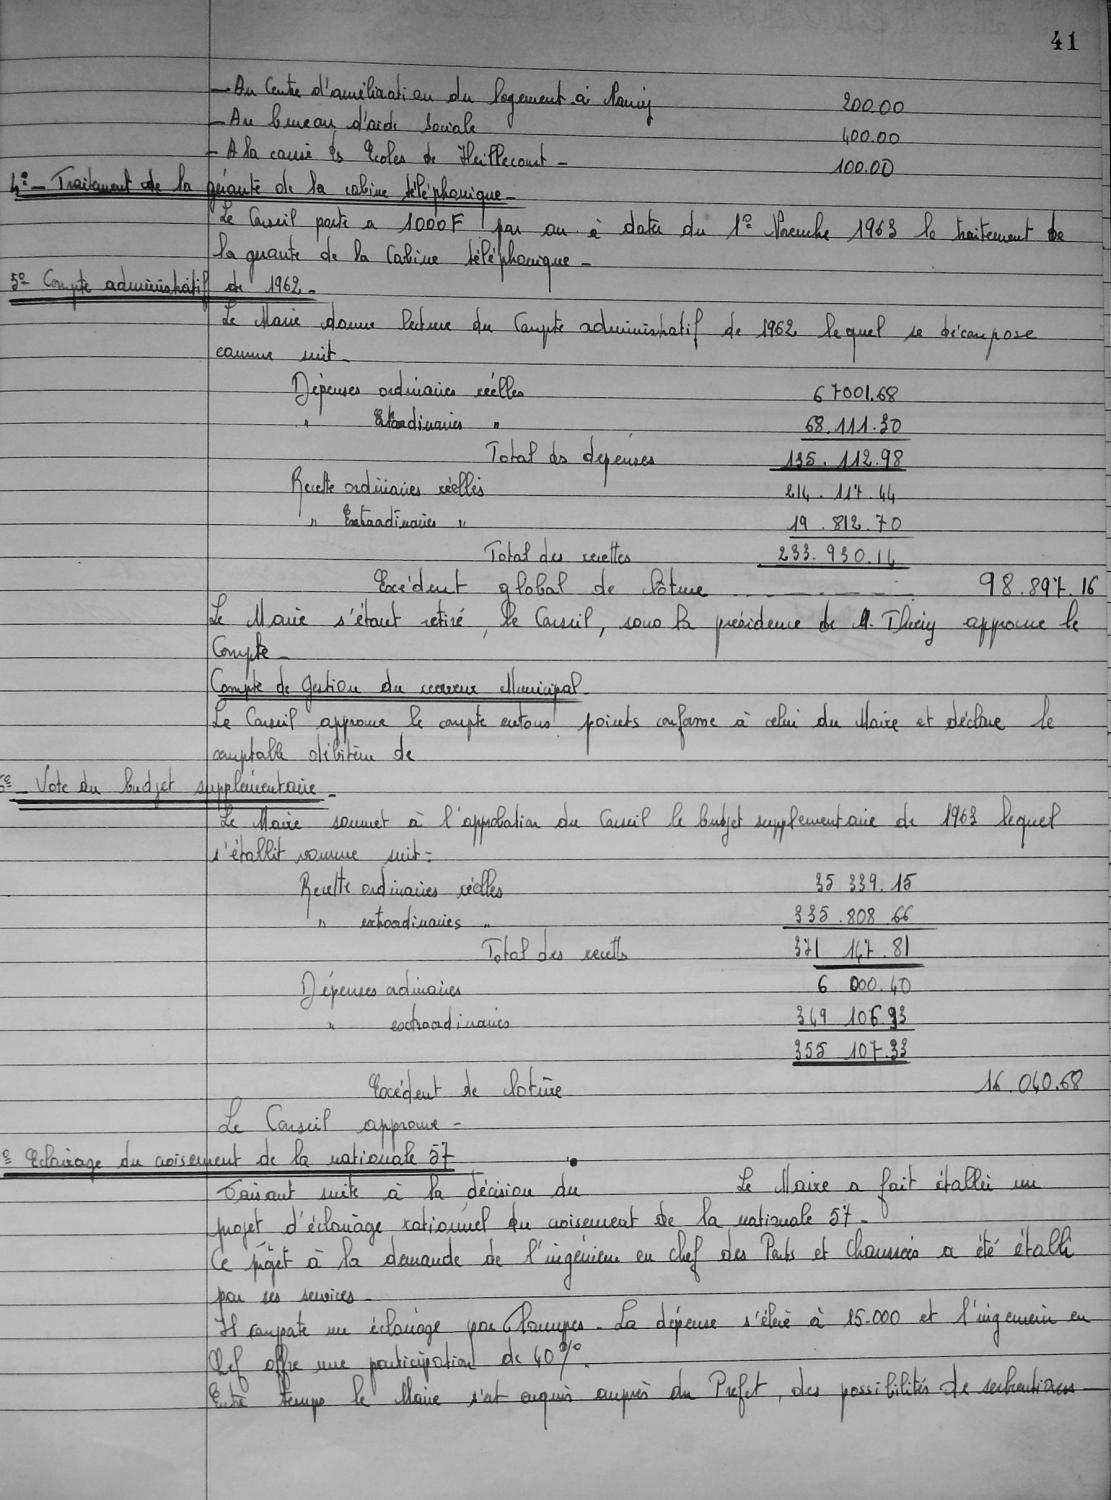 41
- Au Centre d'amélioration du logement à Nancy 200.00
- Au bureau d'aide Sociale 400.00
- A la caisse des Ecoles de Heillecourt - 100.00
4º - Traitement de la gérante de la cabine téléphonique -
Le Conseil porte a 1000F par an à dater du 1º Novembre 1963 le traitement de
la gérante de la Cabine téléphonique -
5º Compte administratif de 1962 -
Le Maire donne lecture du Compte administratif de 1962 lequel se décompose
comme suit -
Dépenses ordinaires réelles 67001.68
" Extraordinaires " 68.111.30
Total des dépenses 135.112.98
Recette ordinaires réelles 214.117.44
" Extraordinaires " 19.812.70
Total des recettes 233.930.14
Excédent global de clôture 98.897.16
Le Maire s'étant retiré, le Conseil, sous la présidence de M. Thiery approuve le
Compte -
Compte de Gestion du receveur Municipal -
Le Conseil approuve le compte en tous points conforme à celui du Maire et déclare le
comptable débiteur de
6º - Vote du budget supplémentaire -
Le Maire soumet à l'approbation du Conseil le budget supplementaire de 1963 lequel
s'établit comme suit :
Recette ordinaires réelles 35 339.15
" extraordinaires " 335.808.66
Total des recetts 371 147.81
Dépenses ordinaires 6 000.40
" extraordinaires 349 106.93
355 107.33
Excédent de cloture 16.040.68
Le Conseil approuve -
º Eclairage du croisement de la nationale 57
Faisant suite à la décision du Le Maire a fait établir un
projet d'éclairage rationnel du croisement de la nationale 57 -
Ce projet à la demande de l'ingénieur en chef des Ponts et Chaussées a été établi
par ses services -
Il comporte un éclairage par lampes - La dépense s'élève à 15.000 et l'ingenieur en
Chef offre une participation de 40%.
Entre temps le Maire s'est enquis auprès du Prefet, des possibilités de subventions